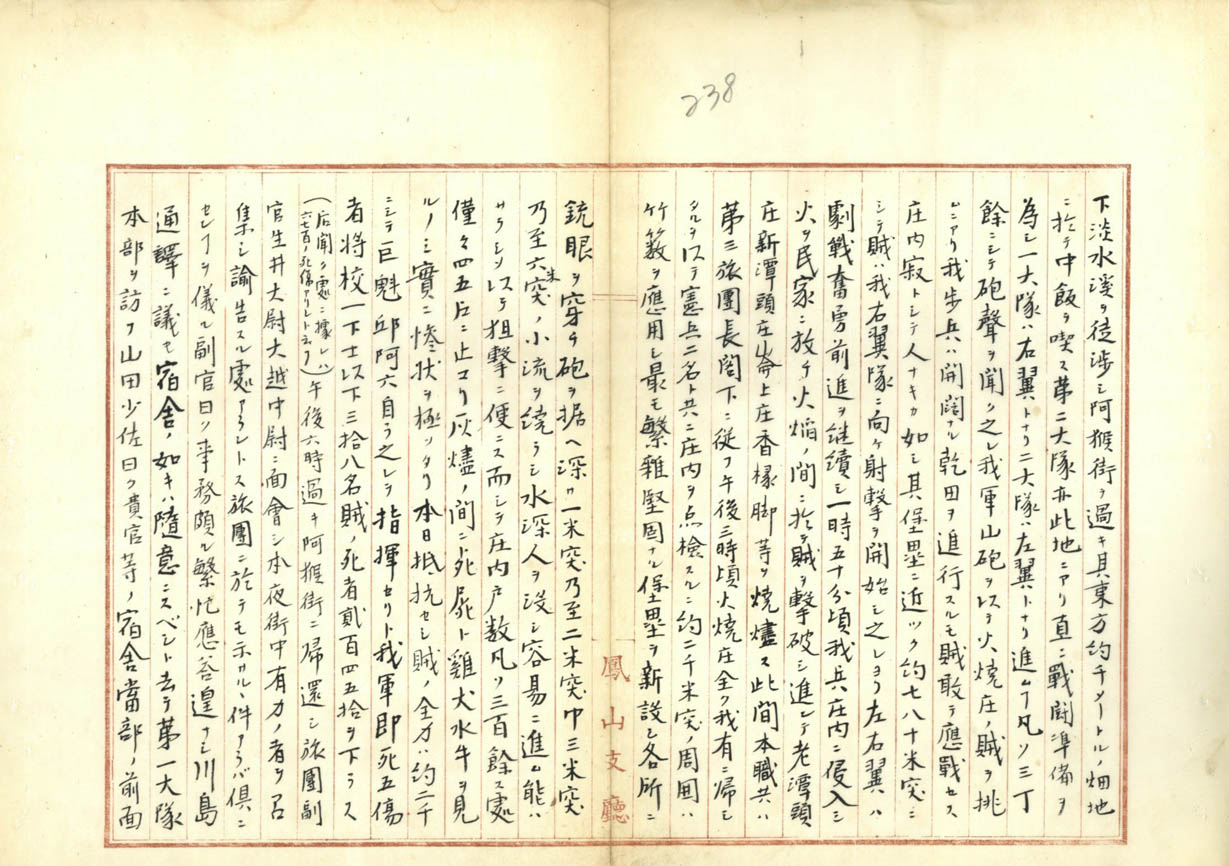 238
下淡水溪ヲ徒渉シ阿猴街ヲ過キ其東方約千メートルノ畑地
ニ於テ中飯ヲ喫ス第二大隊亦此地ニアリ直ニ戰鬪準備ヲ
為シ一大隊ハ右翼トナリ二大隊ハ左翼トナリ進ムヿ凡ソ三丁
餘ニシテ砲聲ヲ聞ク之レ我軍山砲ヲ以テ火燒庄ノ賊ヲ挑
ムニアリ我步兵ハ開闊ナル乾田ヲ進行スルモ賊敢テ應戰セス
庄内寂トシテ人ナキカ如シ其堡壘ニ近ツク約七八十米突ニ
シテ賊ハ我右翼隊ニ向ケ射擊ヲ開始シ之レヨリ左右翼ハ
劇戰奮勇前進ヲ継續シ一時五十分頃我兵庄内ニ侵入シ
火ヲ民家ニ放チ火焰ノ間ニ於テ賊ヲ擊破シ進ンテ老潭頭
庄新潭頭庄崙上庄香櫞脚等ヲ燒燼ス此間本職共ハ
第三旅團長閣下ニ従フ午後三時頃火燒庄全ク我有ニ帰シ
タルヲ以テ憲兵二名ト共ニ庄内ヲ点檢スルニ約二千米突ノ周囲ニ
竹籔ヲ應用シ最モ繁雜堅固ナル堡壘ヲ新設シ各所ニ
鳳山支廳
銃眼ヲ穿チ砲ヲ据ヘ深サ一米突乃至二米突巾三米突
乃至六米突ノ小流ヲ繞ラシ水深人ヲ没シ容易ニ進ム能ハ
サラシメ以テ狙擊ニ便ス而シテ庄内戸数凡ソ三百餘ス處
僅々四五戸ニ止マリ灰燼ノ間ニ死屍ト雞犬水牛ヲ見
ルノミ實ニ慘状ヲ極メタリ本日抵抗セシ賊ノ全力ハ約二千
ニシテ巨魁邱阿六自ラ之レヲ指揮セリト我軍即死五傷
者将校一下士以下三拾八名賊ノ死者貳百四五拾ヲ下ラス
(后聞ク處ニ據レハ六七百ノ死傷アリシト云フ)午後六時過キ阿猴街ニ帰還シ旅團副
官生井大尉大越中尉ニ面會シ本夜街中有力ノ者ヲ召
集シ諭告スル處アラントス旅團ニ於テモ示サルヽ件アラバ俱ニ
センヿヲ儀ル副官曰ク事務頗ル繁忙應答遑ナシ川島
通譯ニ議セ宿舍ノ如キハ隨意ニスベシト去テ第一大隊
本部ヲ訪フ山田少佐曰ク貴官等ノ宿舍當部ノ前面